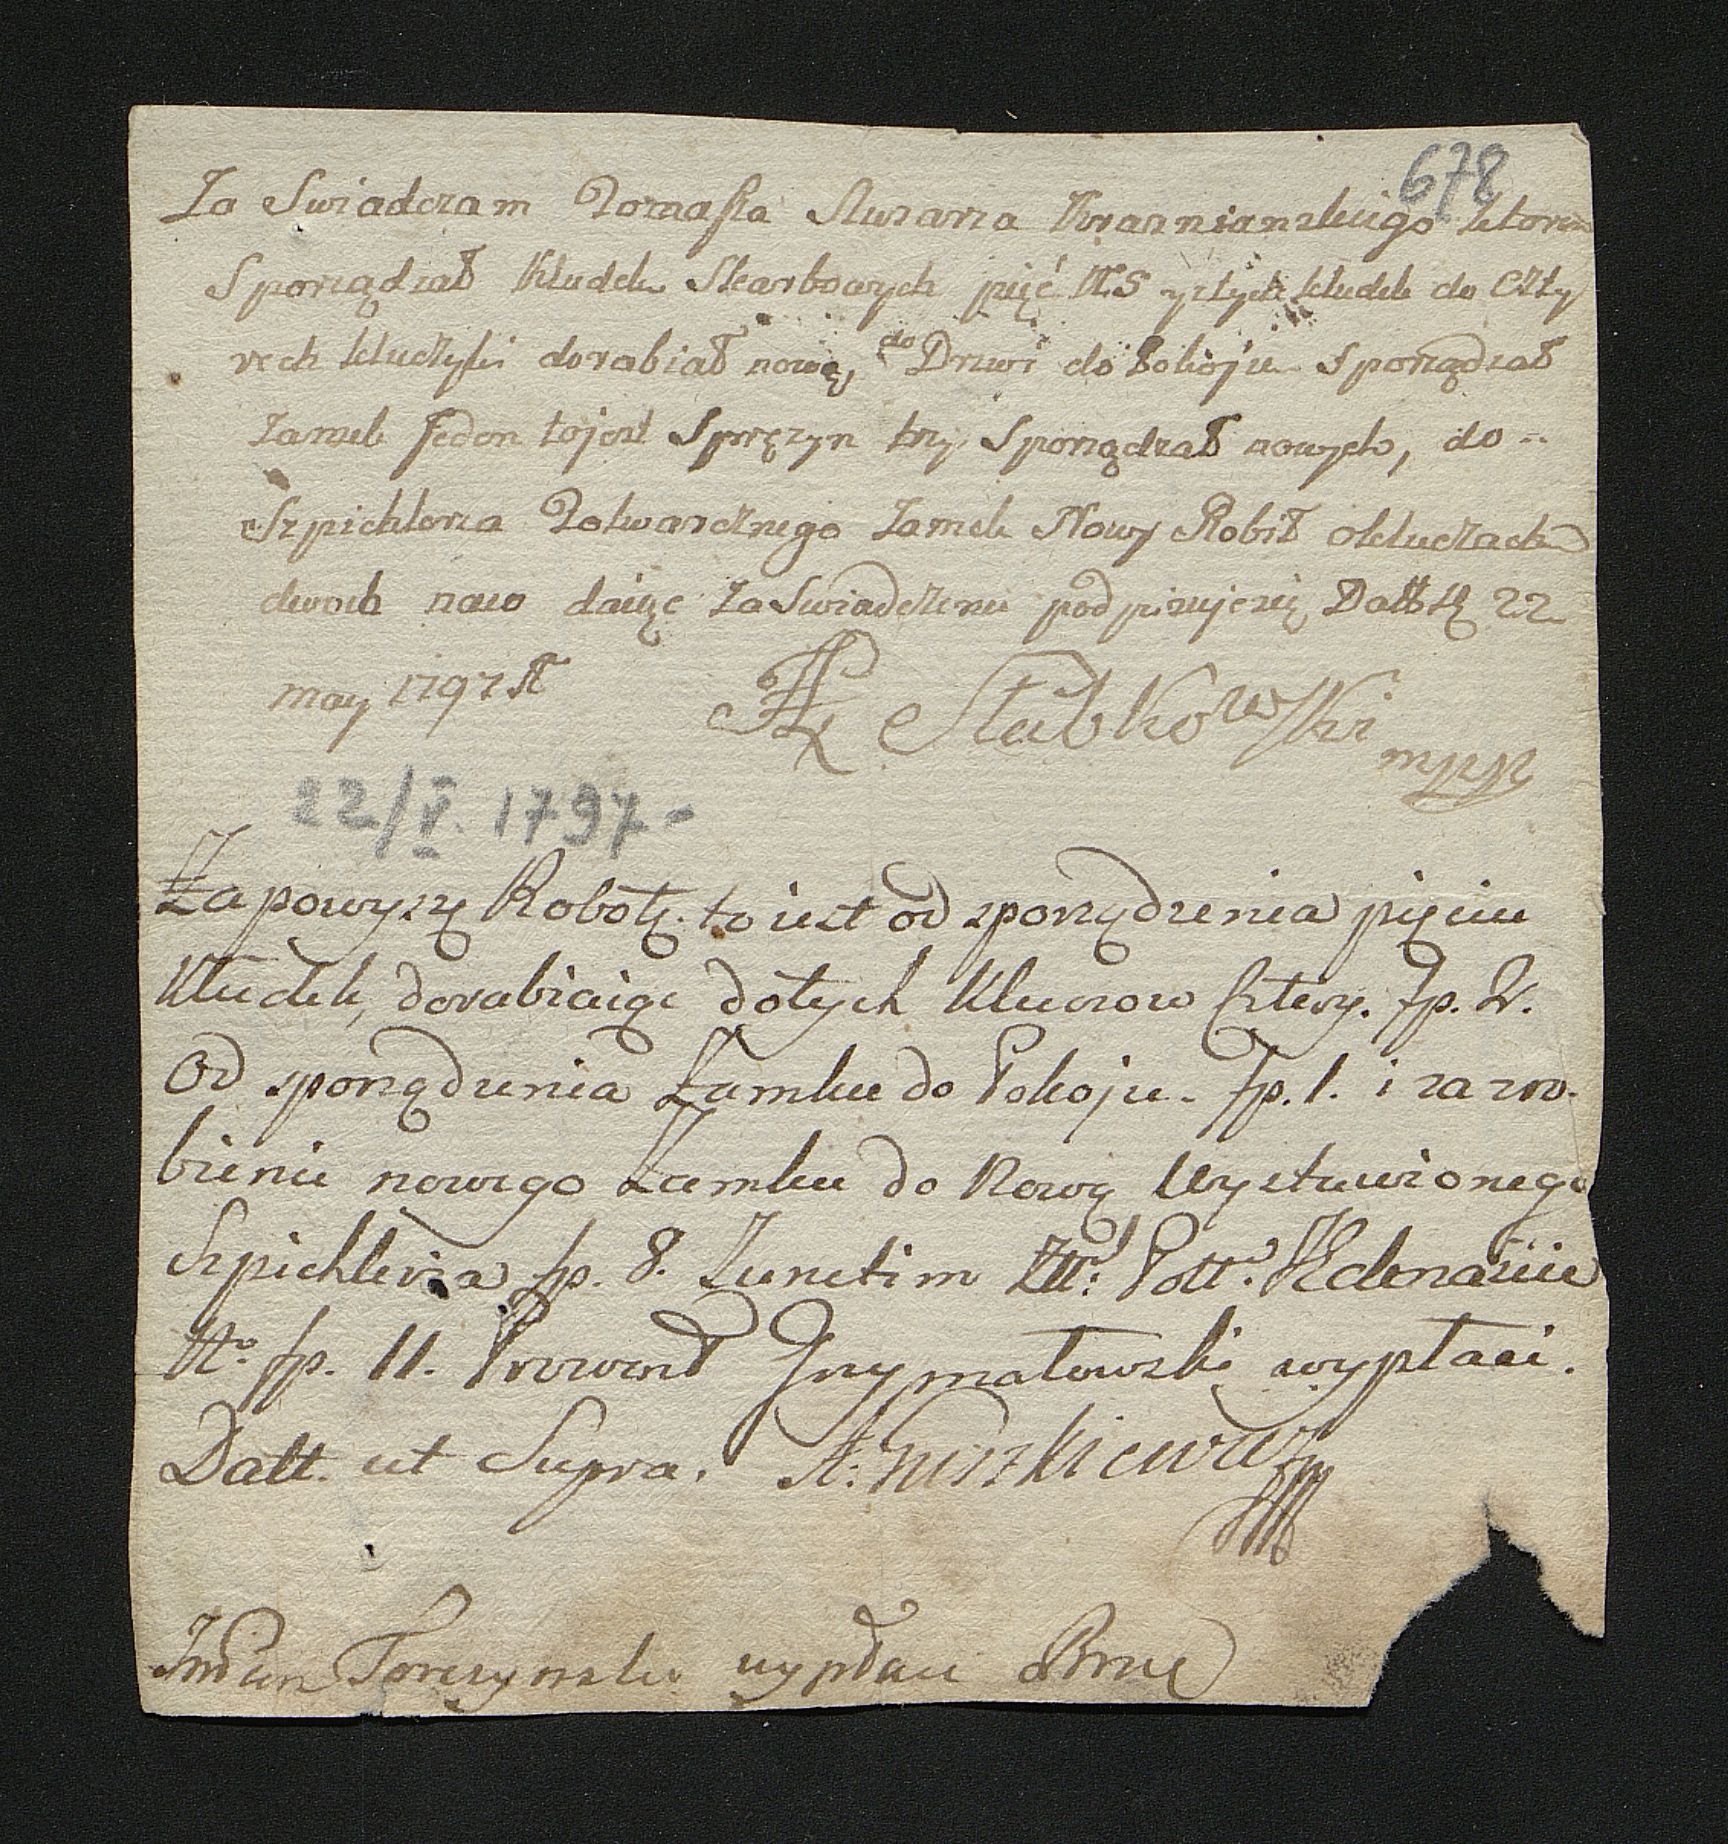 678
Za Swiadczam Tomasza Slusarza Krasnianskiego ktoren
Sporządzał Kłudek Skarbowych pięć N 5 ztych kłudek do Czty
rech kluczyki dorabiał nowe, do Drzwi do Pokoju Sporządzał
Zamek Jeden tojest Spręzyn trzy Sporządzał nowych, do
Szpichlerza Folwarcznego Zamek Nowy Robił okluczach
dwoch naco daiąc zaSwiadczenie podpisujesię Datt 22
may 1797
Stubkowski mpp
22/V. 1797-
Za powyszę Robotę. to iest od sporządzenia pięciu
Kłudek, dorabiaiąc dotych Kluczow Cztery. fp. 2.
Od sporządzenia Zamku do Pokoju. fp. 1. i za zro-
bienie nowego Zamku do Nowy Wystawionego
Szpichlerza fp. 8. Junctim Pott.
No. fp. 11. Prowent Grzymałowski wypłaci.
Datt. ut Supra. A:
Tarczynski wypłaci